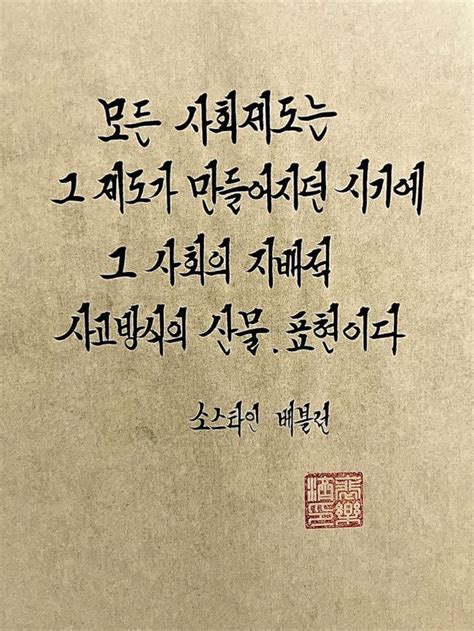 모든 사회제도는
그 제도가 만들어지던 시기에
그 사회의 지배적
사고방식의 산물, 표현이다
소스타인 베블런